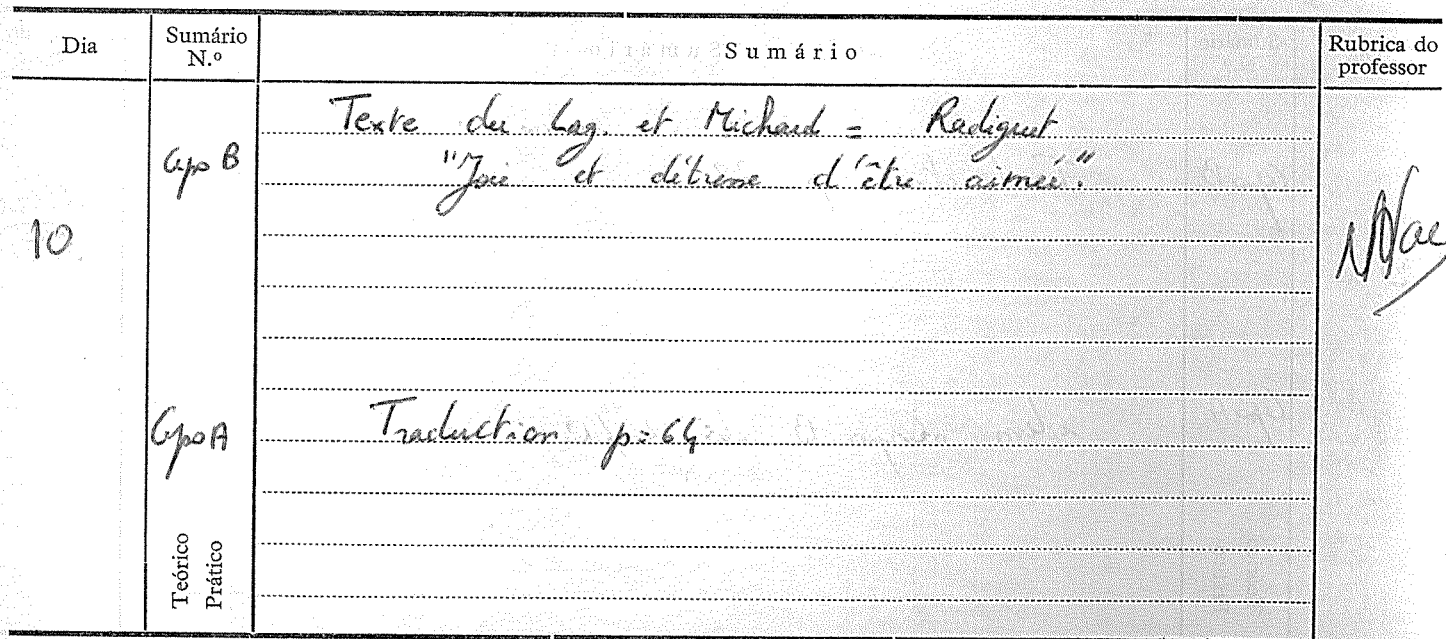 Dia
Sumário N.º
Sumário
Rubrica do professor
10
Gpo B
Texte du Lag. et Michard = Radiguet
"Joie et détresse d'être aimé."
Gpo A
Traduction p=64
Teórico
Prático